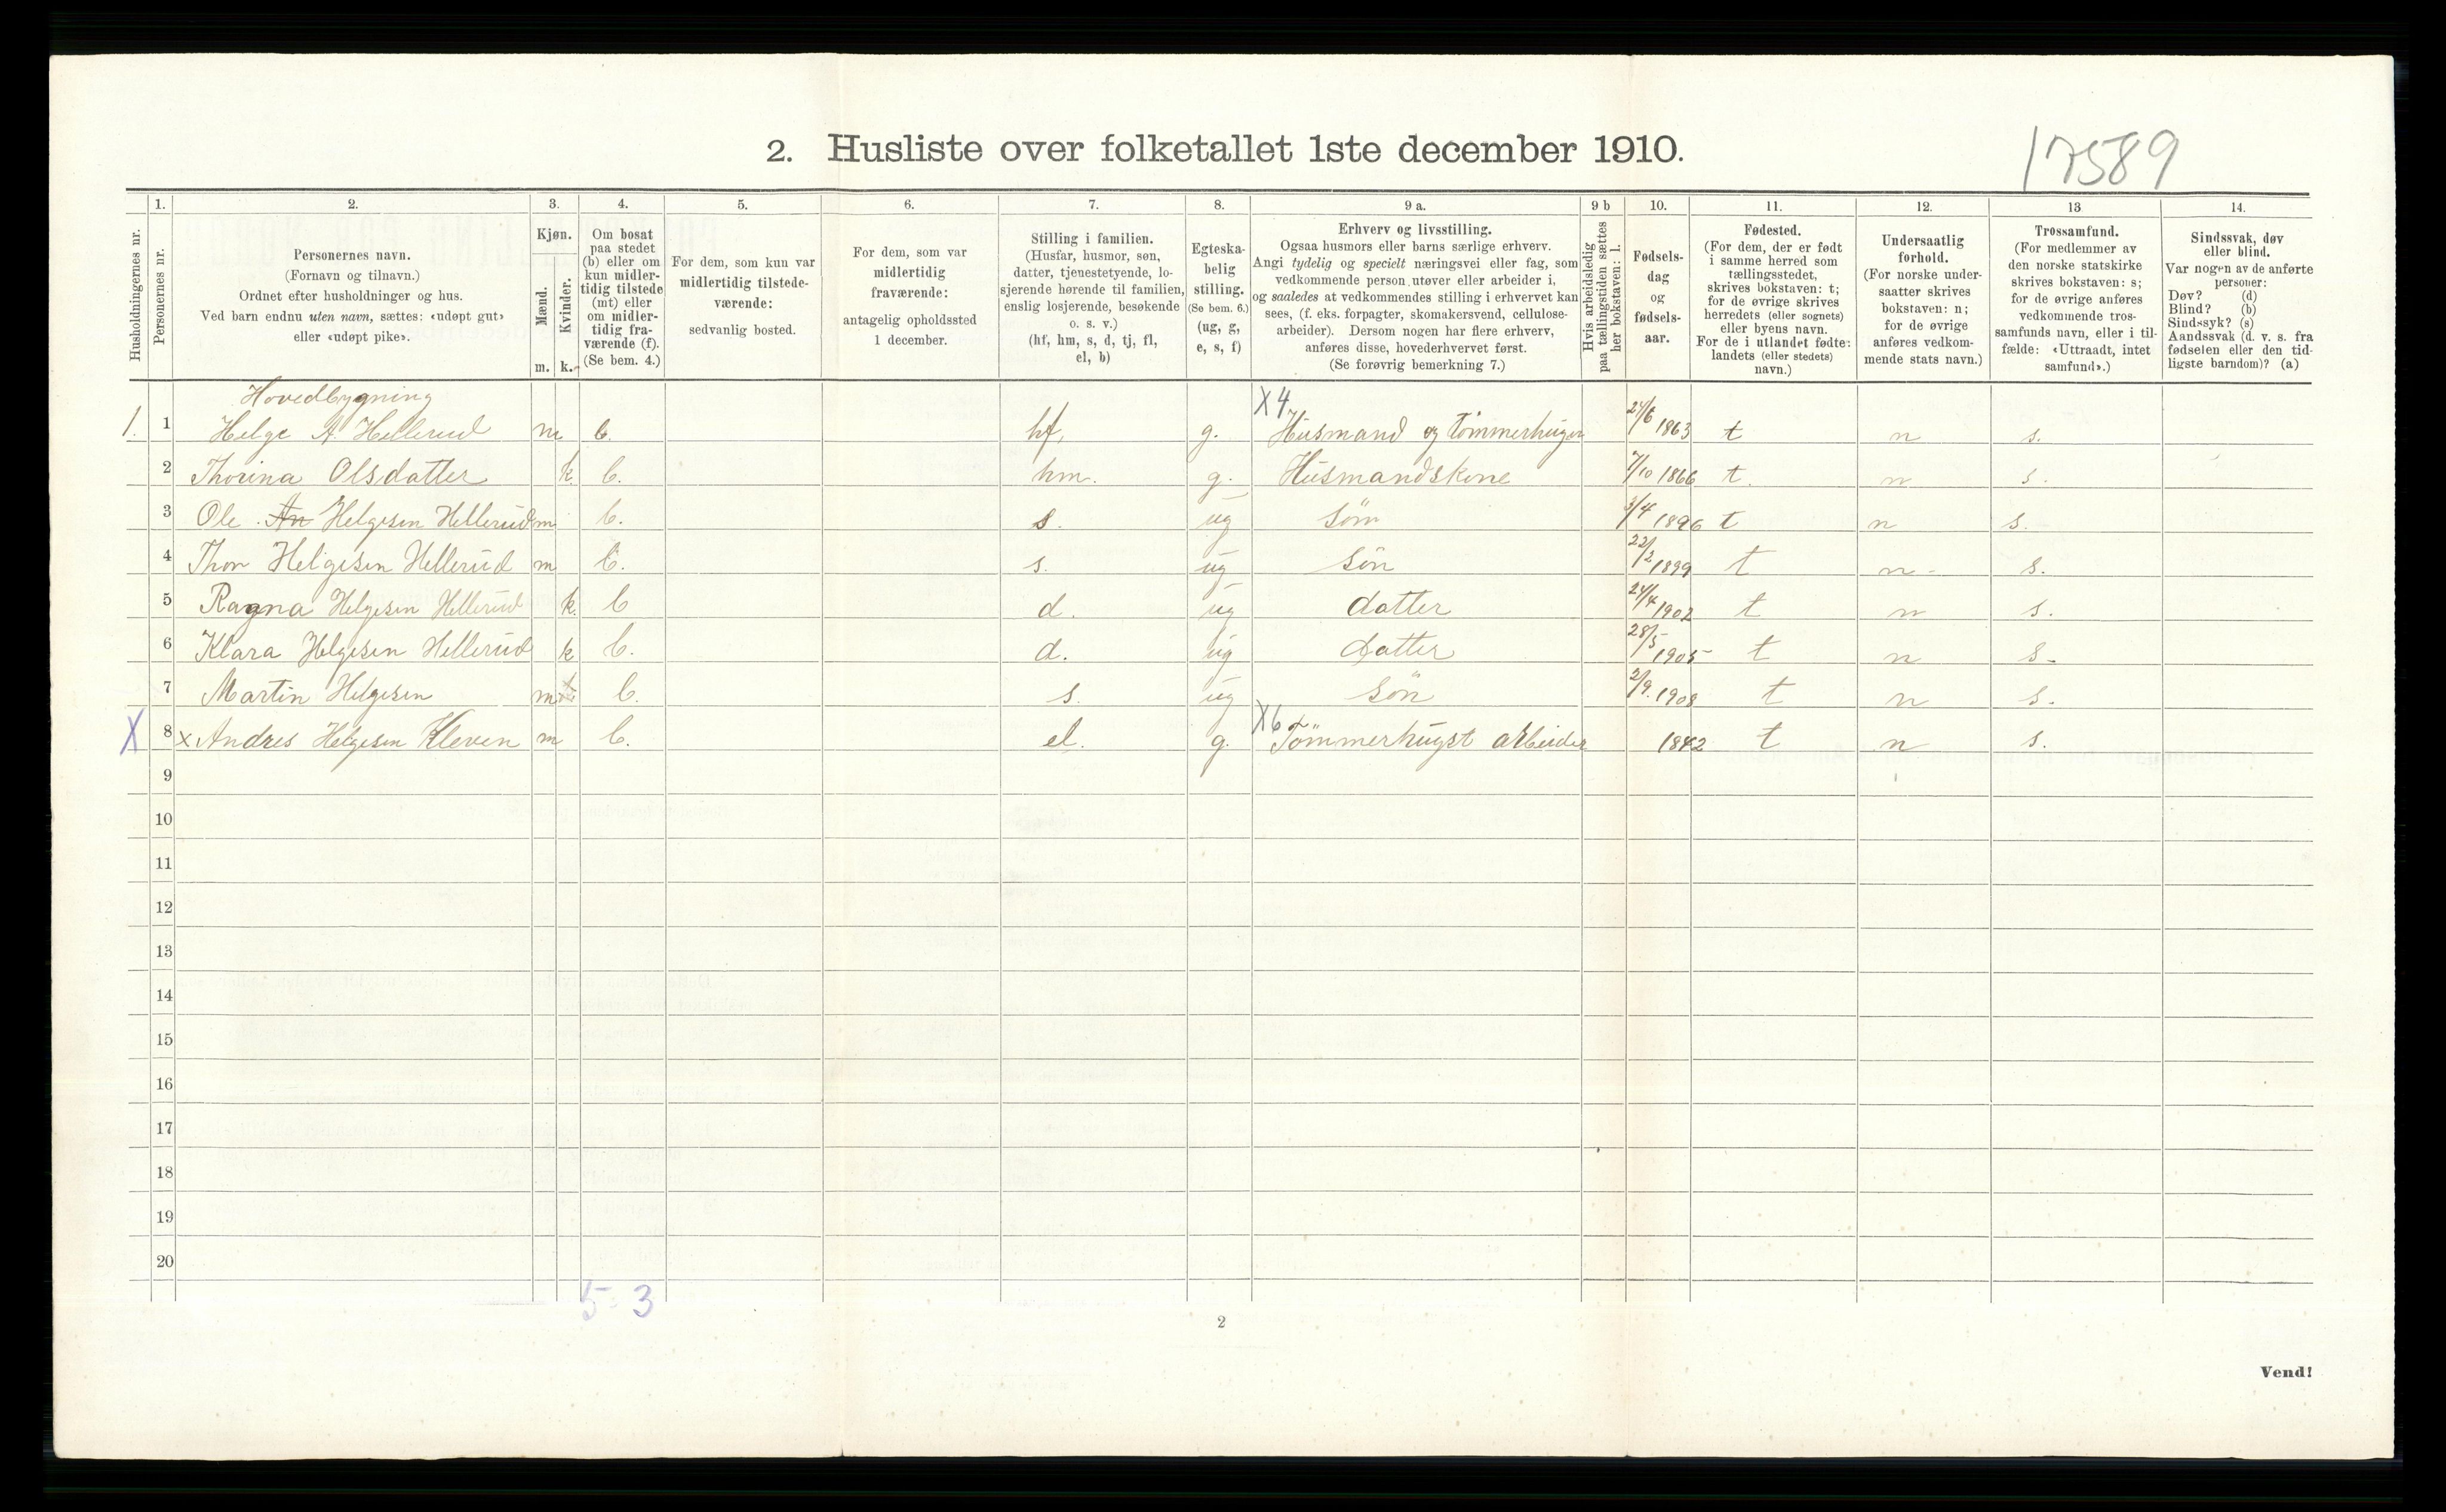 2. Husliste over folketallet 1ste december 1910.
17589
Husholdningernes nr.
1.
Personernes nr.
2.
Personernes navn.
(Fornavn og tilnavn.)
Ordnet efter husholdninger og hus.
Ved barn endnu uten navn, sættes: «udøpt gut»
eller «udøpt pike».
3.
Kjøn.
Mænd.
Kvinder.
m. k.
4.
Om bosat
paa stedet
(b) eller om
kun midler-
tidig tilstede
(mt) eller
om midler-
tidig fra-
værende (f).
(Se bem. 4.)
5.
For dem, som kun var
midlertidig tilstede-
værende:
sedvanlig bosted.
6.
For dem, som var
midlertidig
fraværende:
antagelig opholdssted
1 december.
7.
Stilling i familien.
(Husfar, husmor, søn,
datter, tjenestetyende, lo-
sjerende hørende til familien,
enslig losjerende, besøkende
o. s. v.)
(hf, hm, s, d, tj, fl,
el, b)
8.
Egteska-
belig
stilling.
(Se bem. 6.)
(ug, g,
e, s, f)
9 a.
Erhverv og livsstilling.
Ogsaa husmors eller barns særlige erhverv.
Angi tydelig og specielt næringsvei eller fag, som
vedkommende person utøver eller arbeider i,
og saaledes at vedkommendes stilling i erhvervet kan
sees, (f. eks. forpagter, skomakersvend, cellulose-
arbeider). Dersom nogen har flere erhverv,
anføres disse, hovederhvervet først.
(Se forøvrig bemerkning 7.)
9 b
Hvis arbeidsledig
paa tællingstiden sættes
her bokstaven: l.
10.
Fødsels-
dag
og
fødsels-
aar.
11.
Fødested.
(For dem, der er født
i samme herred som
tællingsstedet,
skrives bokstaven: t;
for de øvrige skrives
herredets (eller sognets)
eller byens navn.
For de i utlandet fødte:
landets (eller stedets)
navn.)
12.
Undersaatlig
forhold.
(For norske under-
saatter skrives
bokstaven: n;
for de øvrige
anføres vedkom-
mende stats navn.)
13
Trossamfund.
(For medlemmer av
den norske statskirke
skrives bokstaven: s;
for de øvrige anføres
vedkommende tros-
samfunds navn, eller i til-
fælde: «Uttraadt, intet
samfund».)
14.
Sindssvak, døv
eller blind.
Var nogen av de anførte
personer:
Døv? (d)
Blind? (b)
Sindssyk? (s)
Aandssvak (d. v. s. fra
fødselen eller den tid-
ligste barndom)? (a)
Hovedbygning
1. 1 Helge A Hellerud m b. hf, g. X4 Husmand og Tømmerhuger 24/6 1863 t n s.
2 Thorina Olsdatter k. b. hm. g. Husmandskone 7/10 1866 t. n s.
3 Ole An Helgesen Hellerud m b. s. ug Søn 3/4 1896 t n s.
4 Thor Helgesen Hellerud m b. s. ug Søn 22/2 1899 t n s.
5 Ragna Helgesen Hellerud k. b d. ug datter 24/4 1902 t n s.
6 Klara Helgesen Hellerud k b. d. ug datter 28/5 1905 t n s.
7 Martin Helgesen m b. s. ug søn 2/9. 1908 t n s.
X 8 x Andres Helgesen Kleven m b. el. g. X6 Tømmerhugst arbeider 1842 t n s.
9
10
11
12
13
14
15
16
17
18
19
20
5-3
2
Vend!